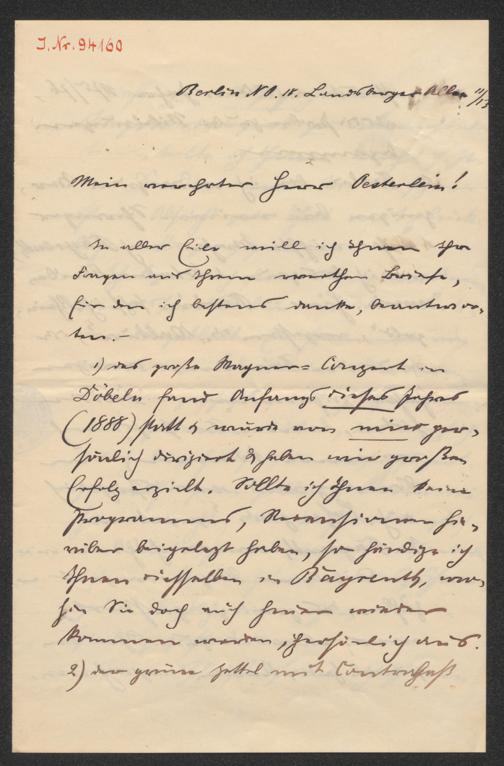 J. Nr. 94160
Berlin NO. 18. Landsberger Allee 11/13
Mein verehrter Herr Oesterlein!
In aller Eile will ich Ihnen Ihre
Fragen aus Ihrem werthen Briefe,
für den ich bestens danke, beantwor-
ten.-
1) das große Wagner=Conzert in
Döbeln fand Anfangs dieses Jahres
(1888) statt & wurde von mir per-
sönlich dirigiert & haben wir großen
Erfolg erzielt. Sollte ich Ihnen keine
Programms, Recensionen hie-
rüber beigelegt haben, so händige ich
Ihnen dieselben in Bayreuth, wo-
hin Sie doch auch heuer wieder
kommen werden, persönlich aus.
2) der grüne Zettel mit